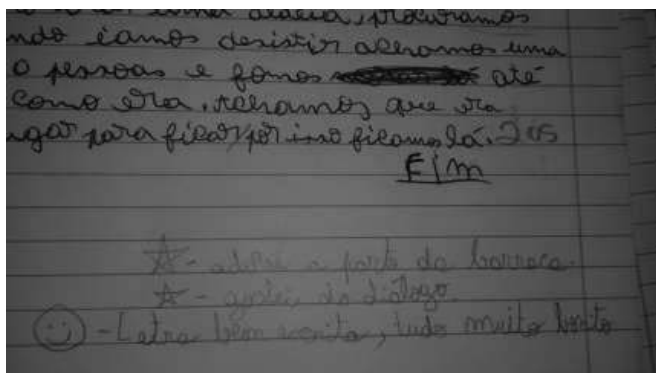 uma aldeia, procuramos
ndo iamos desistir achamos uma
o pessoas e fomos até
como era. achamos que era
ugar para ficar, por isso ficamos lá.
Fim
☆ - adorei a parte da barraca.
☆ - gostei do diálogo.
☺ - Letra bem escrita, tudo muito bonito